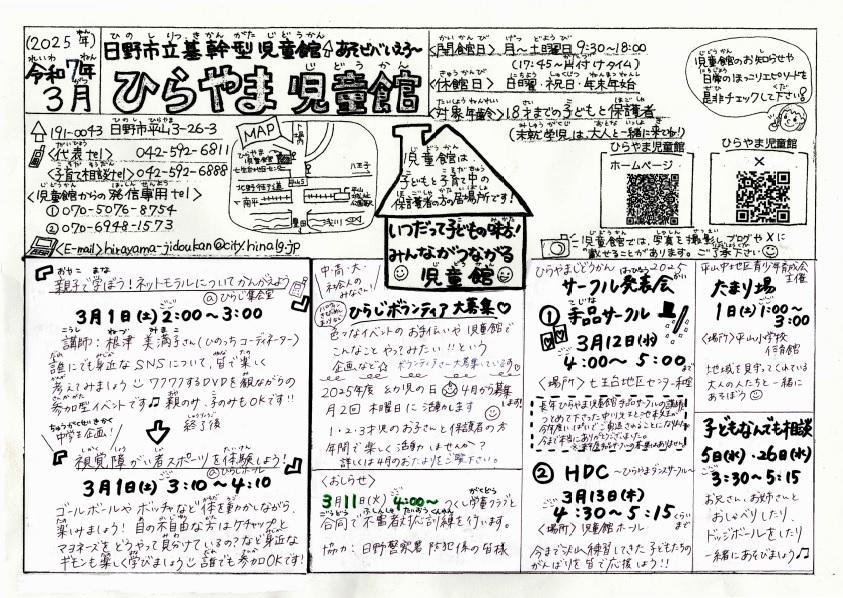 (2025年)
令和7年
3月
日野市立基幹型児童館☆あそビバいえろ~
ひらやま 児童館
<開館日> 月~土曜日 9:30~18:00
(17:45~片付けタイム)
<休館日> 日曜・祝日・年末年始
<対象年齢> 18才までの子どもと保護者
(未就学児は、大人と一緒に来てね!)
児童館のお知らせや
日常のほっこりエピソードを
是非チェックして下さい!
〒191-0043 日野市平山3-26-3
<代表tel> 042-592-6811
<子育て相談tel> 042-592-6888
<児童館からの発信専用tel>
①070-5076-8754
②070-6948-1573
<E-mail> hirayama-jidoukan@city.hino.lg.jp
MAP
八王子
北野街道
南平
浅川
児童館は
子どもと子育て中の
保護者の方の居場所です!
いつだって子どもの味方!
みんながつながる
児童館
ひらやま児童館
ホームページ
ひらやま児童館
X
児童館では、写真を撮影し、ブログやXに
載せることがあります。ご了承下さい
親子で学ぼう!ネットモラルについてかんがえよう
@ひらじ集会室
3月1日(土) 2:00~3:00
講師:根津 美満子さん(ひのっちコーディネーター)
誰にでも身近なSNSについて、皆で楽しく
考えてみましょう ワクワクするDVDを観ながらの
参加型イベントです♪ 親のみ、子のみもOK!!
終了後
中学生企画!
視覚障がい者スポーツを体験しよう!
@ひらじホール
3月1日(土) 3:10~4:10
ゴールボールやボッチャなど体を動かしながら、
楽しみましょう! 目の不自由な方はケチャップと
マヨネーズをどうやって見分けているの?など身近な
ギモンも楽しく学びましょう 誰でも参加OKです!
中・高・大・
社会人の
みなさん!
ひらじボランティア大募集♡
色々なイベントのお手伝いや児童館で
こんなことやってみたい!!という
企画など☆ ボランティアさん大募集しています
2025年度 幼児の日 4月から募集します!
月2回 木曜日に活動します
1・2・3才児のお子さんと保護者の方
年間で楽しく活動しませんか?
詳しくは4月のおたよりをご覧下さい。
<おしらせ>
3月11日(火) 4:00~ つくし学童クラブと
合同で不審者対応訓練を行います。
協力:日野警察署 防犯係の皆様
ひらやまじどうかん 2025
サークル発表会
① 手品サークル
3月12日(水)
4:00~5:00まで
<場所> 七生台地区センター和室
長年ひらやま児童館手品サークルの講師を
② HDC ~ひらやまダンスサークル~
3月13日(木)
4:30~5:15くらいまで
<場所> 児童館ホール
今まで沢山練習してきた子どもたちの
がんばりを皆で応援しよう!!
平山中地区青少年育成会
主催
たまり場
1日(土) 1:00~
3:00
<場所>平山小学校
体育館
地域を見守ってくれている
大人の人たちと一緒に
あそぼう
子どもなんでも相談
5日(水)・26日(水)
3:30~5:15
お兄さん、お姉さんと
おしゃべりしたり、
ドッジボールをしたり
一緒にあそびましょう♪